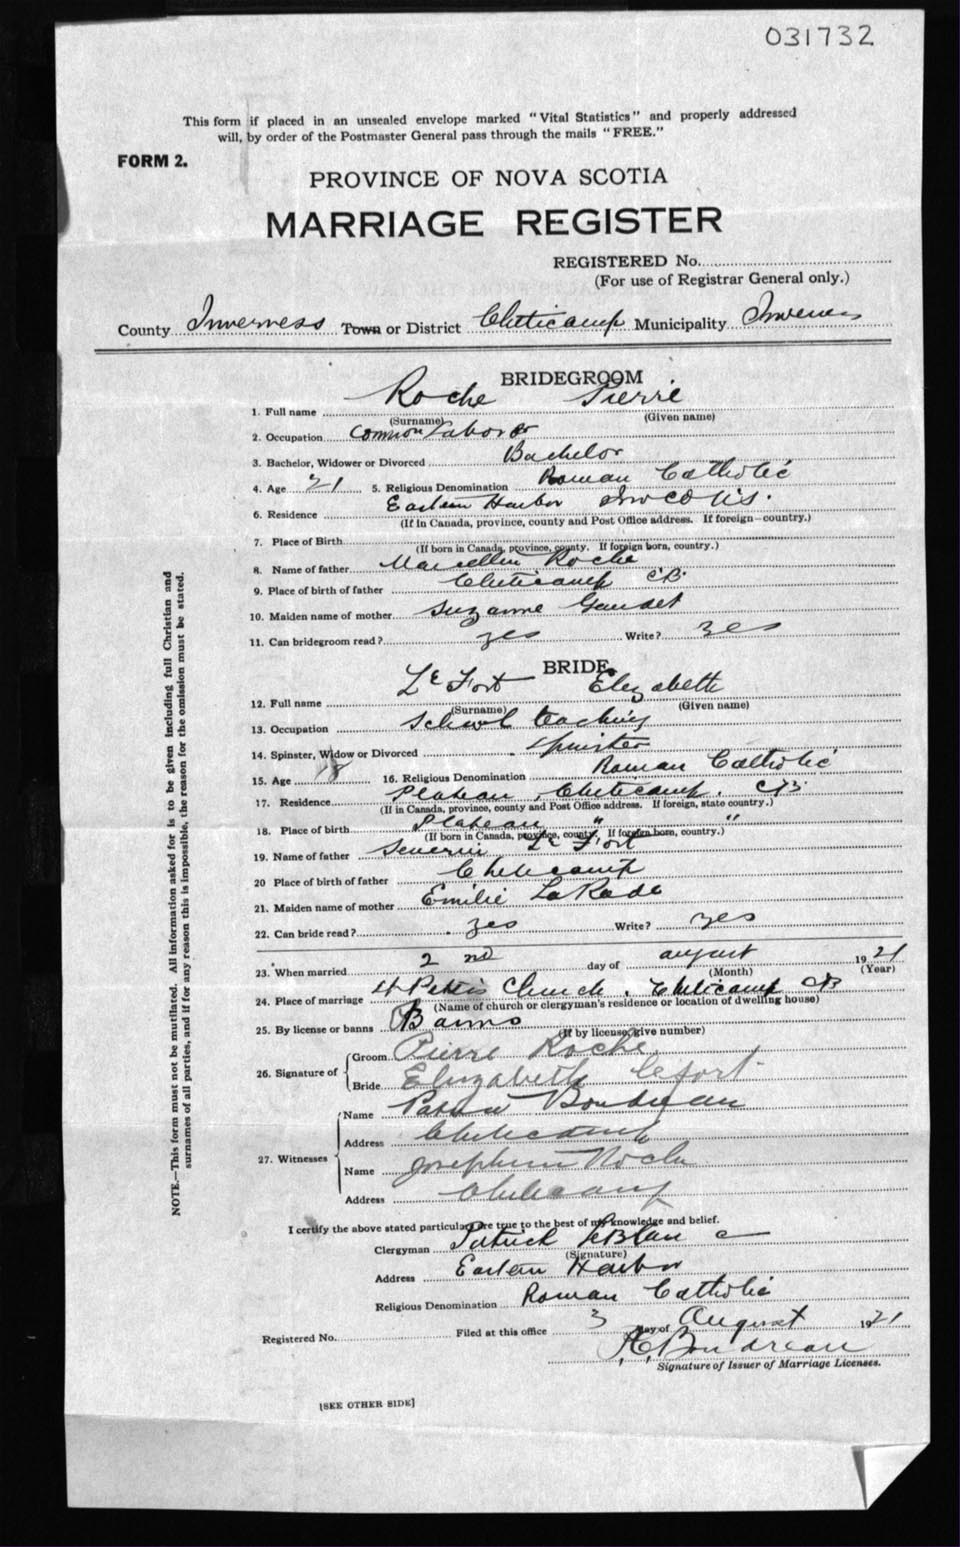 031732
This form if placed in an unsealed envelope marked "Vital Statistics" and properly addressed
will, by order of the Postmaster General pass through the mails "FREE."
FORM 2.
PROVINCE OF NOVA SCOTIA
MARRIAGE REGISTER
REGISTERED No.
(For use of Registrar General only.)
County Inverness Town or District Cheticamp Municipality Inverness
BRIDEGROOM
1. Full name Roche Pierre
(Surname) (Given name)
2. Occupation Common Laborer
3. Bachelor, Widower or Divorced Bachelor
4. Age 21 5. Religious Denomination Roman Catholic
6. Residence Eastern Harbor Inv CO N.S.
(If in Canada, province, county and Post Office address. If foreign—country.)
7. Place of Birth
(If born in Canada, province, county. If foreign born, country.)
8. Name of father Marcellin Roche
9. Place of birth of father Cheticamp CB.
10. Maiden name of mother Suzanne Gaudet
11. Can bridegroom read? yes Write? yes
BRIDE
12. Full name LeFort Elizabeth
(Surname) (Given name)
13. Occupation School teaching
14. Spinster, Widow or Divorced Spinster
15. Age 18 16. Religious Denomination Roman Catholic
17. Residence Plateau, Cheticamp. CB.
(If in Canada, province, county and Post Office address. If foreign, state country.)
18. Place of birth Plateau " "
(If born in Canada, province, county. If foreign born, country.)
19. Name of father Severin Le Fort
20 Place of birth of father Cheticamp
21. Maiden name of mother Emilie LaRade
22. Can bride read? yes Write? yes
23. When married 2 nd day of august 1921
(Month) (Year)
24. Place of marriage St Peters Church, Cheticamp CB
(Name of church or clergyman's residence or location of dwelling house)
25. By license or banns Banns
(If by license, give number)
26. Signature of
Groom Pierre Roche
Bride Elizabeth Lefort
27. Witnesses
Name Boudreau
Address Cheticamp
Name Josephine Roche
Address Cheticamp
I certify the above stated particulars are true to the best of my knowledge and belief.
Clergyman Patrick LeBlanc
(Signature)
Address Eastern Harbor
Religious Denomination Roman Catholic
Registered No. Filed at this office 3 day of August 1921
Boudreau
Signature of Issuer of Marriage Licenses.
[SEE OTHER SIDE]
NOTE.—This form must not be mutilated. All information asked for is to be given including full Christian and
surnames of all parties, and if for any reason this is impossible, the reason for the omission must be stated.